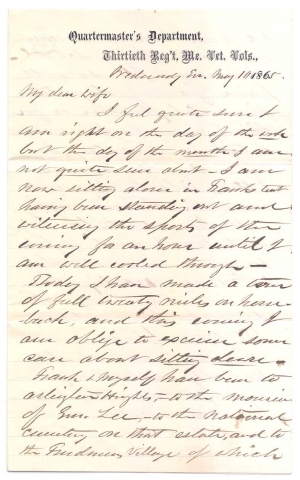 Quartermaster's Department,
Thirtieth Reg't, Me. Vet. Vols.,
Wednesday Eve. May 10 1865.
My dear Wife
I feel quite sure I
am right on the day of the week
but the day of the month I am
not quite sure about - I am
now sitting alone in Frank's tent
having been standing out and
witnessing the sports of the
evening for an hour until I
am well cooled through -
Today I have made a tour
of full twenty miles on horse-
back, and this evening I
am oblige to exercise some
care about sitting down.
Frank & myself have been to
Arlington Heights, - to the mansion
of Gen. Lee, - to the National
cemetery on that estate, and to
the Freedmens Village of which